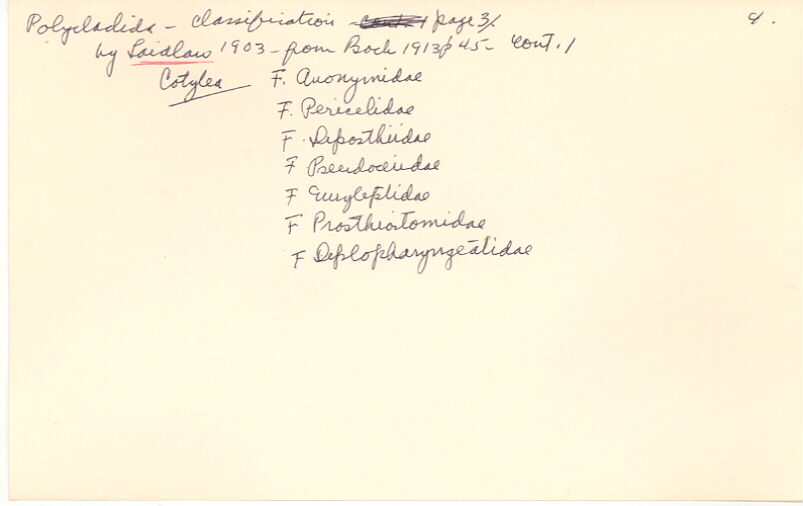 Polycladida - Classification - page 3/ 9.
by Laidlaw 1903 - from Bock 1913 p 45 - cont. /
Cotylea F. Anonymidae
F. Pericelidae
F. Diposthiidae
F Pseudoceridae
F Euryleptidae
F Prosthiostomidae
F Diplopharyngeatidae